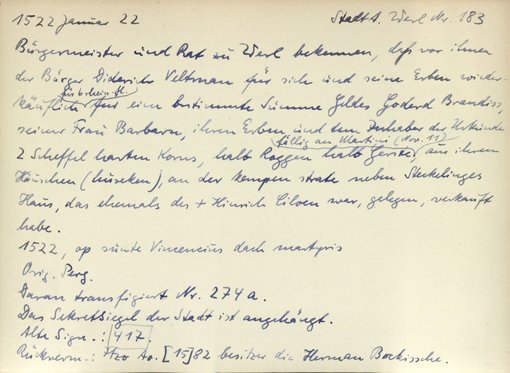 1522 Januar 22 Stadt A. Werl Nr. 183
Bürgermeister und Rat zu Werl bekennen, daß vor ihnen
der Bürger Diderich Veltman für sich und seine Erben wieder-
käuflich für eine bestimmte Summe Geldes Goderd Brandiss,
seiner Frau Barbara, ihren Erben und dem Inhaber der Urkunde
fällig an Martini (Nov. 11)
2 Scheffel harten Korns, halb Roggen halb Gerste, aus ihrem
Häuschen (huseken), an der kempen strate neben Steckelinges
Haus, das ehemals des + Hinrich Ciloen war, gelegen, verkauft
habe.
1522, op sunte Vincencius dach martyris
Orig. Perg.
Daran transfigiert Nr. 274a.
Das Sekretsiegel der Stadt ist angehängt.
Alte Sign.: 417.
Rückverm.: Itzo Ao. [15]82 besitzer die Herman Bockissche.